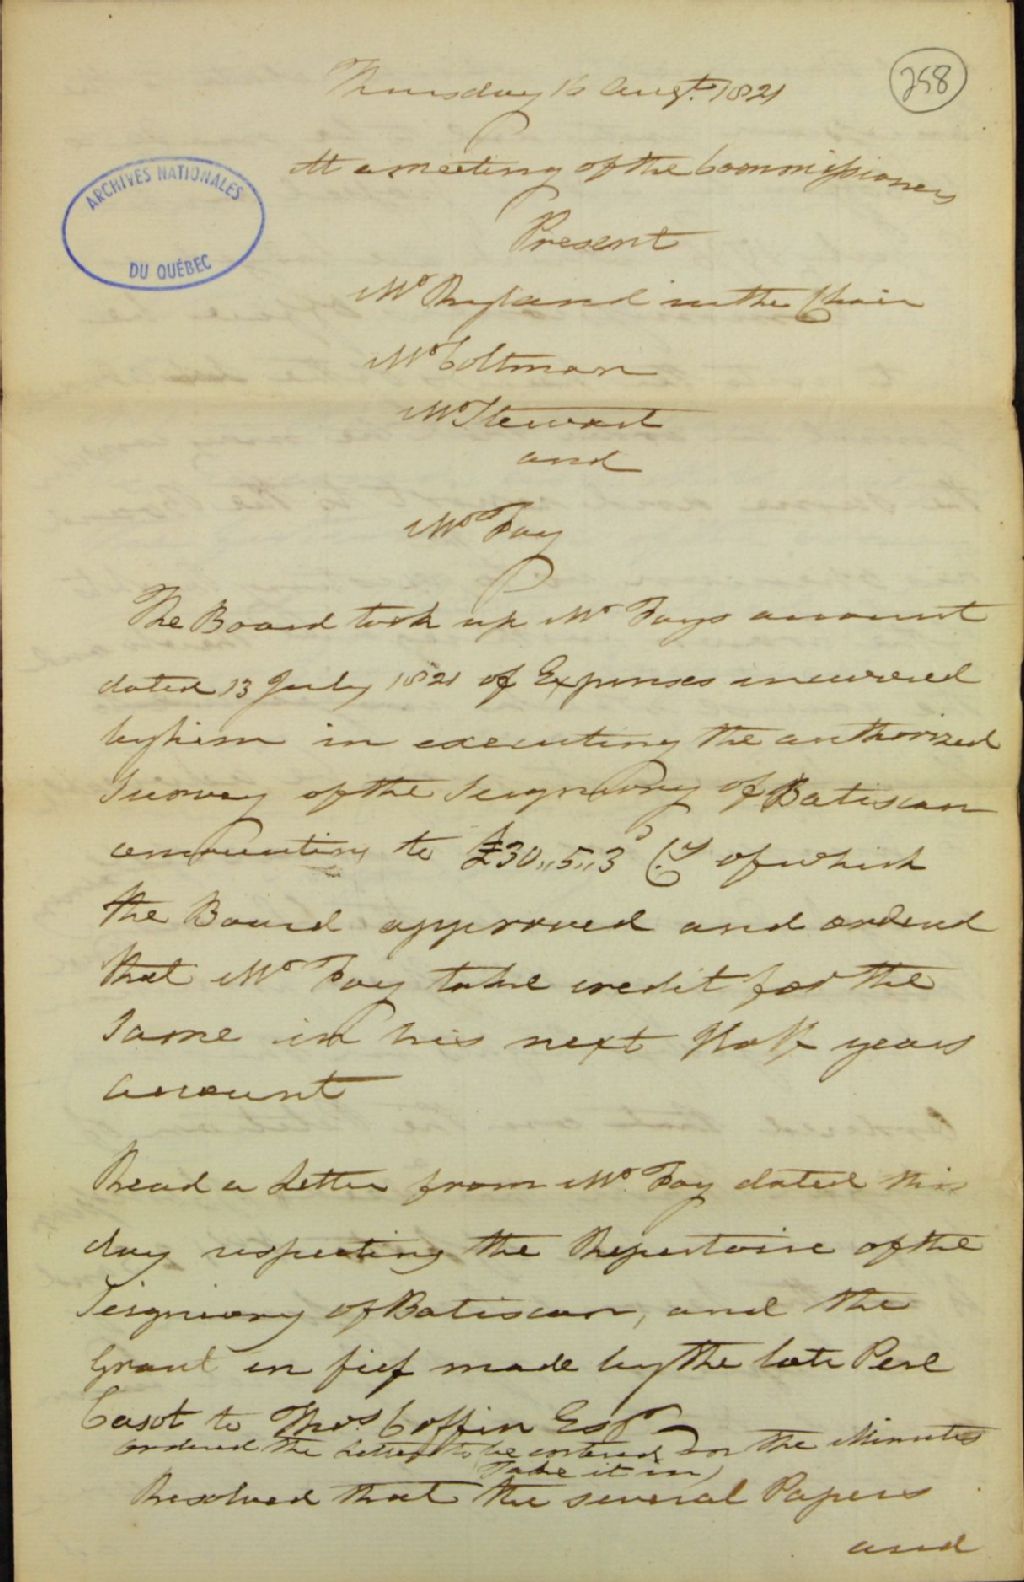 258
Thursday 16 Augt. 1821
At a meeting of the Commissioners
ARCHIVES NATIONALES
DU QUÉBEC
Present
Mr Ryland in the Chair
Mr Coltman
Mr Stewart
and
Mr Fay
The Board took up Mr Fays account
dated 13 July 1821 of Expenses incurred
by him in executing the authorized
Survey of the Seigniory of Batiscan
amounting to £30,,5,,3 Cy of which
the Board approved and ordered
that Mr Fay take credit for the
Same in his next Half years
account
Read a Letter from Mr Fay dated this
day respecting the Repertoire of the
Seigniory of Batiscan, and the
Grant en fief made by the late Pere
Casot to Thos Coffin Esqr
ordered the Letter to be entered on the Minutes
(Take it in)
Resolved that the several Papers
and